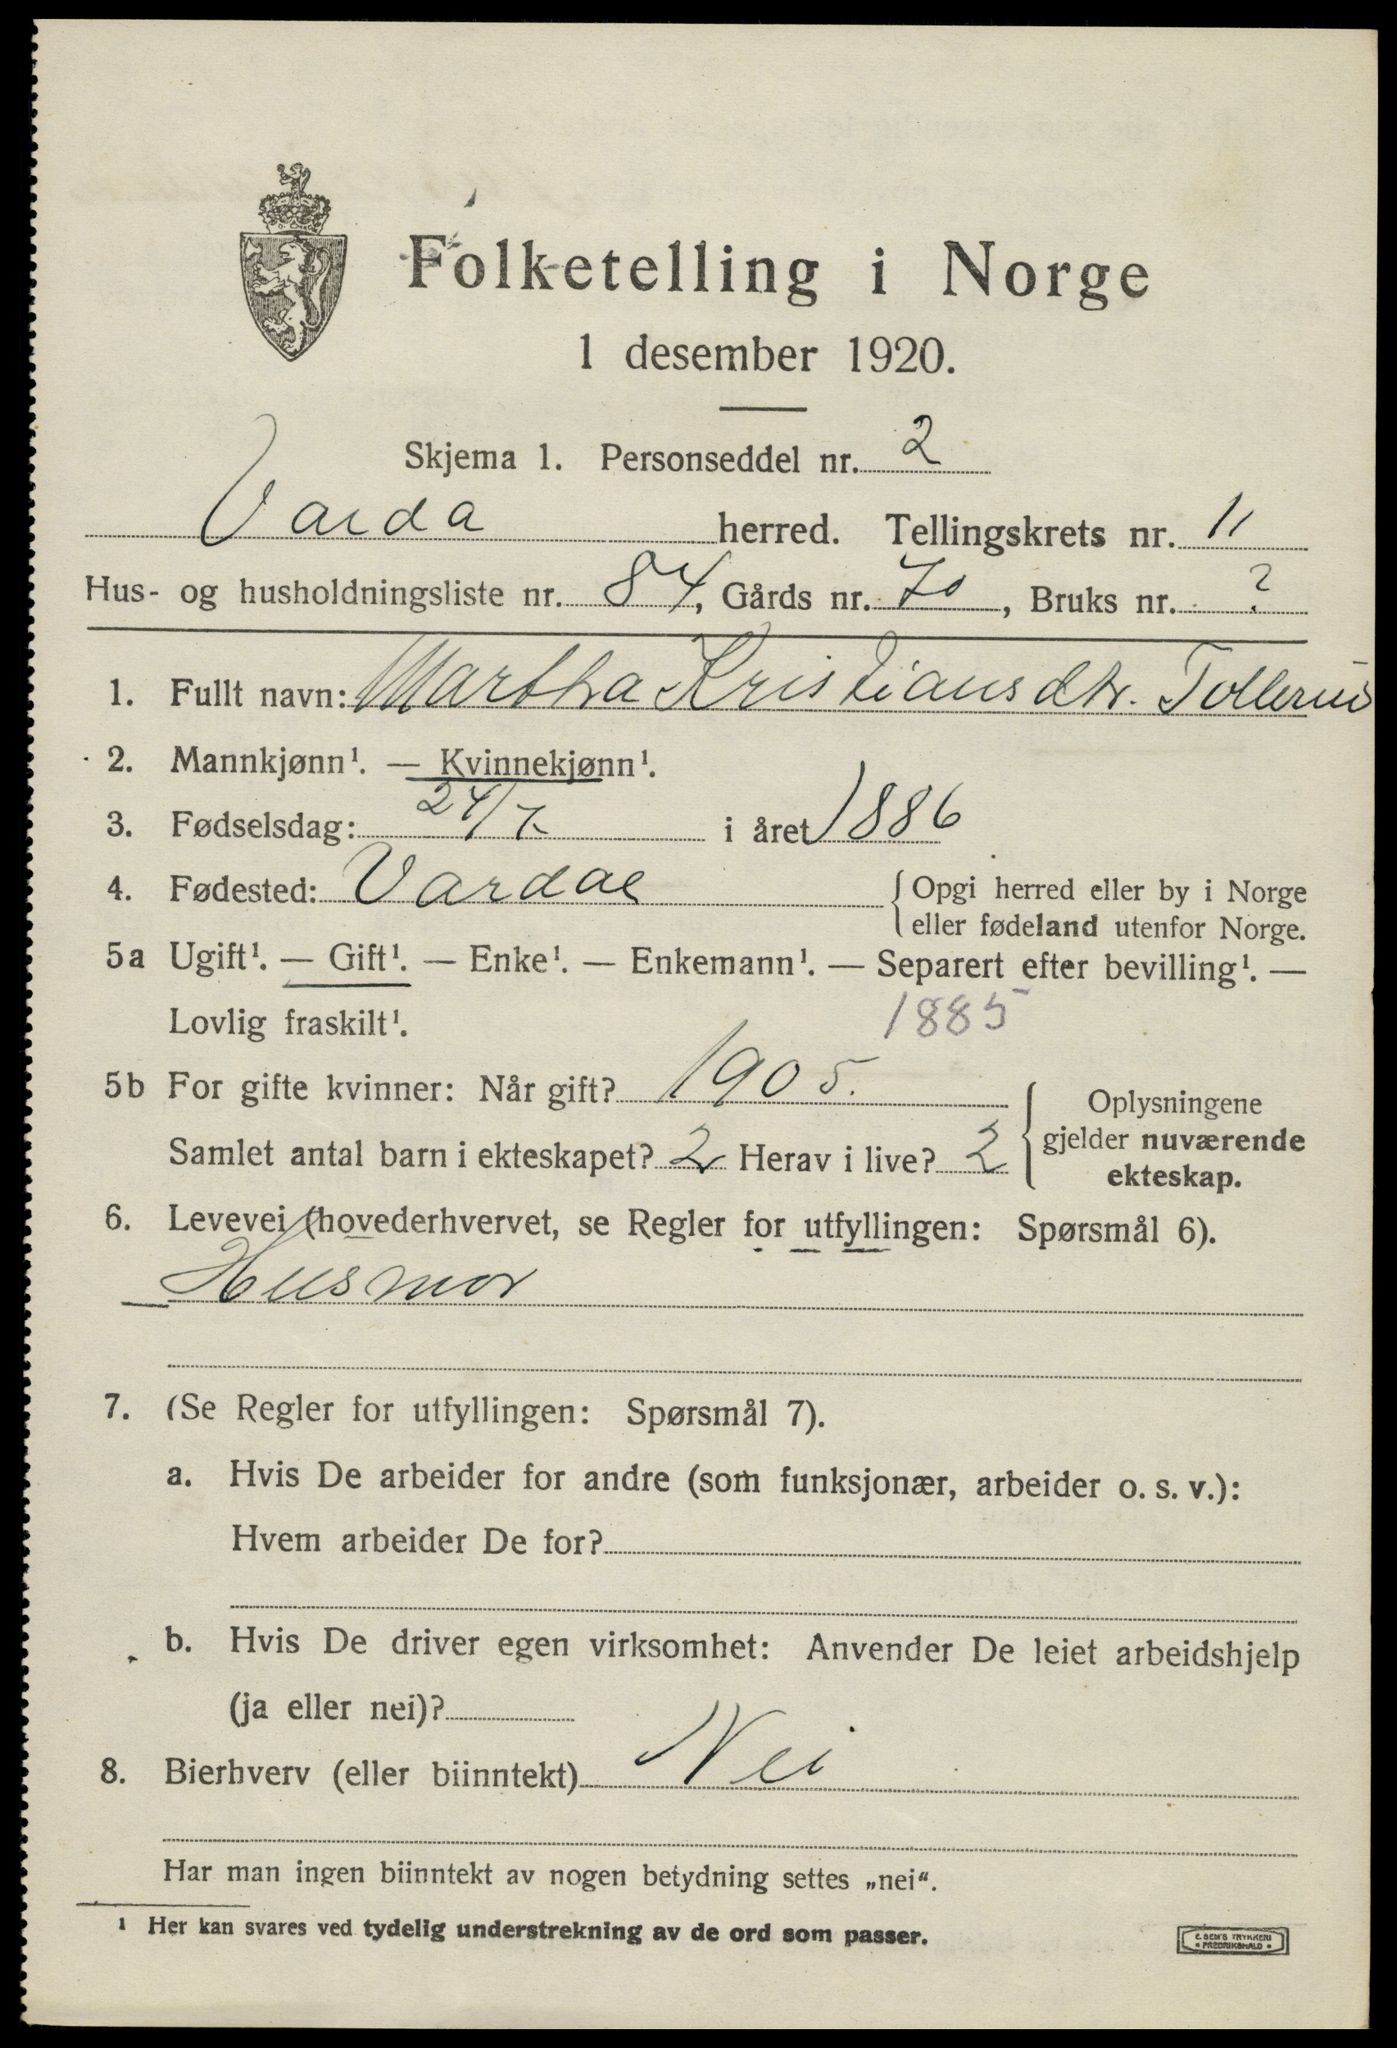 Folketelling i Norge
1 desember 1920.
Skjema 1. Personseddel nr. 2
Varda herred. Tellingskrets nr. 11
Hus- og husholdningsliste nr. 84, Gårds nr. 70, Bruks nr. ?
1. Fullt navn: Martha Kristiansdtr. Tollerud
2. Mannkjønn¹. — Kvinnekjønn¹.
3. Fødselsdag: 24/7 i året 1886
4. Fødested: Vardal { Opgi herred eller by i Norge
eller fødeland utenfor Norge.
5a Ugift¹. — Gift¹. — Enke¹. — Enkemann¹. — Separert efter bevilling¹. —
Lovlig fraskilt¹. 1885
5b For gifte kvinner: Når gift? 1905. { Oplysningene
gjelder nuværende
ekteskap.
Samlet antal barn i ekteskapet? 2 Herav i live? 2
6. Levevei (hovederhvervet, se Regler for utfyllingen: Spørsmål 6).
Husmor
7. (Se Regler for utfyllingen: Spørsmål 7).
a. Hvis De arbeider for andre (som funksjonær, arbeider o. s. v.):
Hvem arbeider De for?
b. Hvis De driver egen virksomhet: Anvender De leiet arbeidshjelp
(ja eller nei)?
8. Bierhverv (eller biinntekt) Nei
Har man ingen biinntekt av nogen betydning settes „nei“.
¹ Her kan svares ved tydelig understrekning av de ord som passer.
E. SEM'S TRYKKERI
FREDRIKSHALD